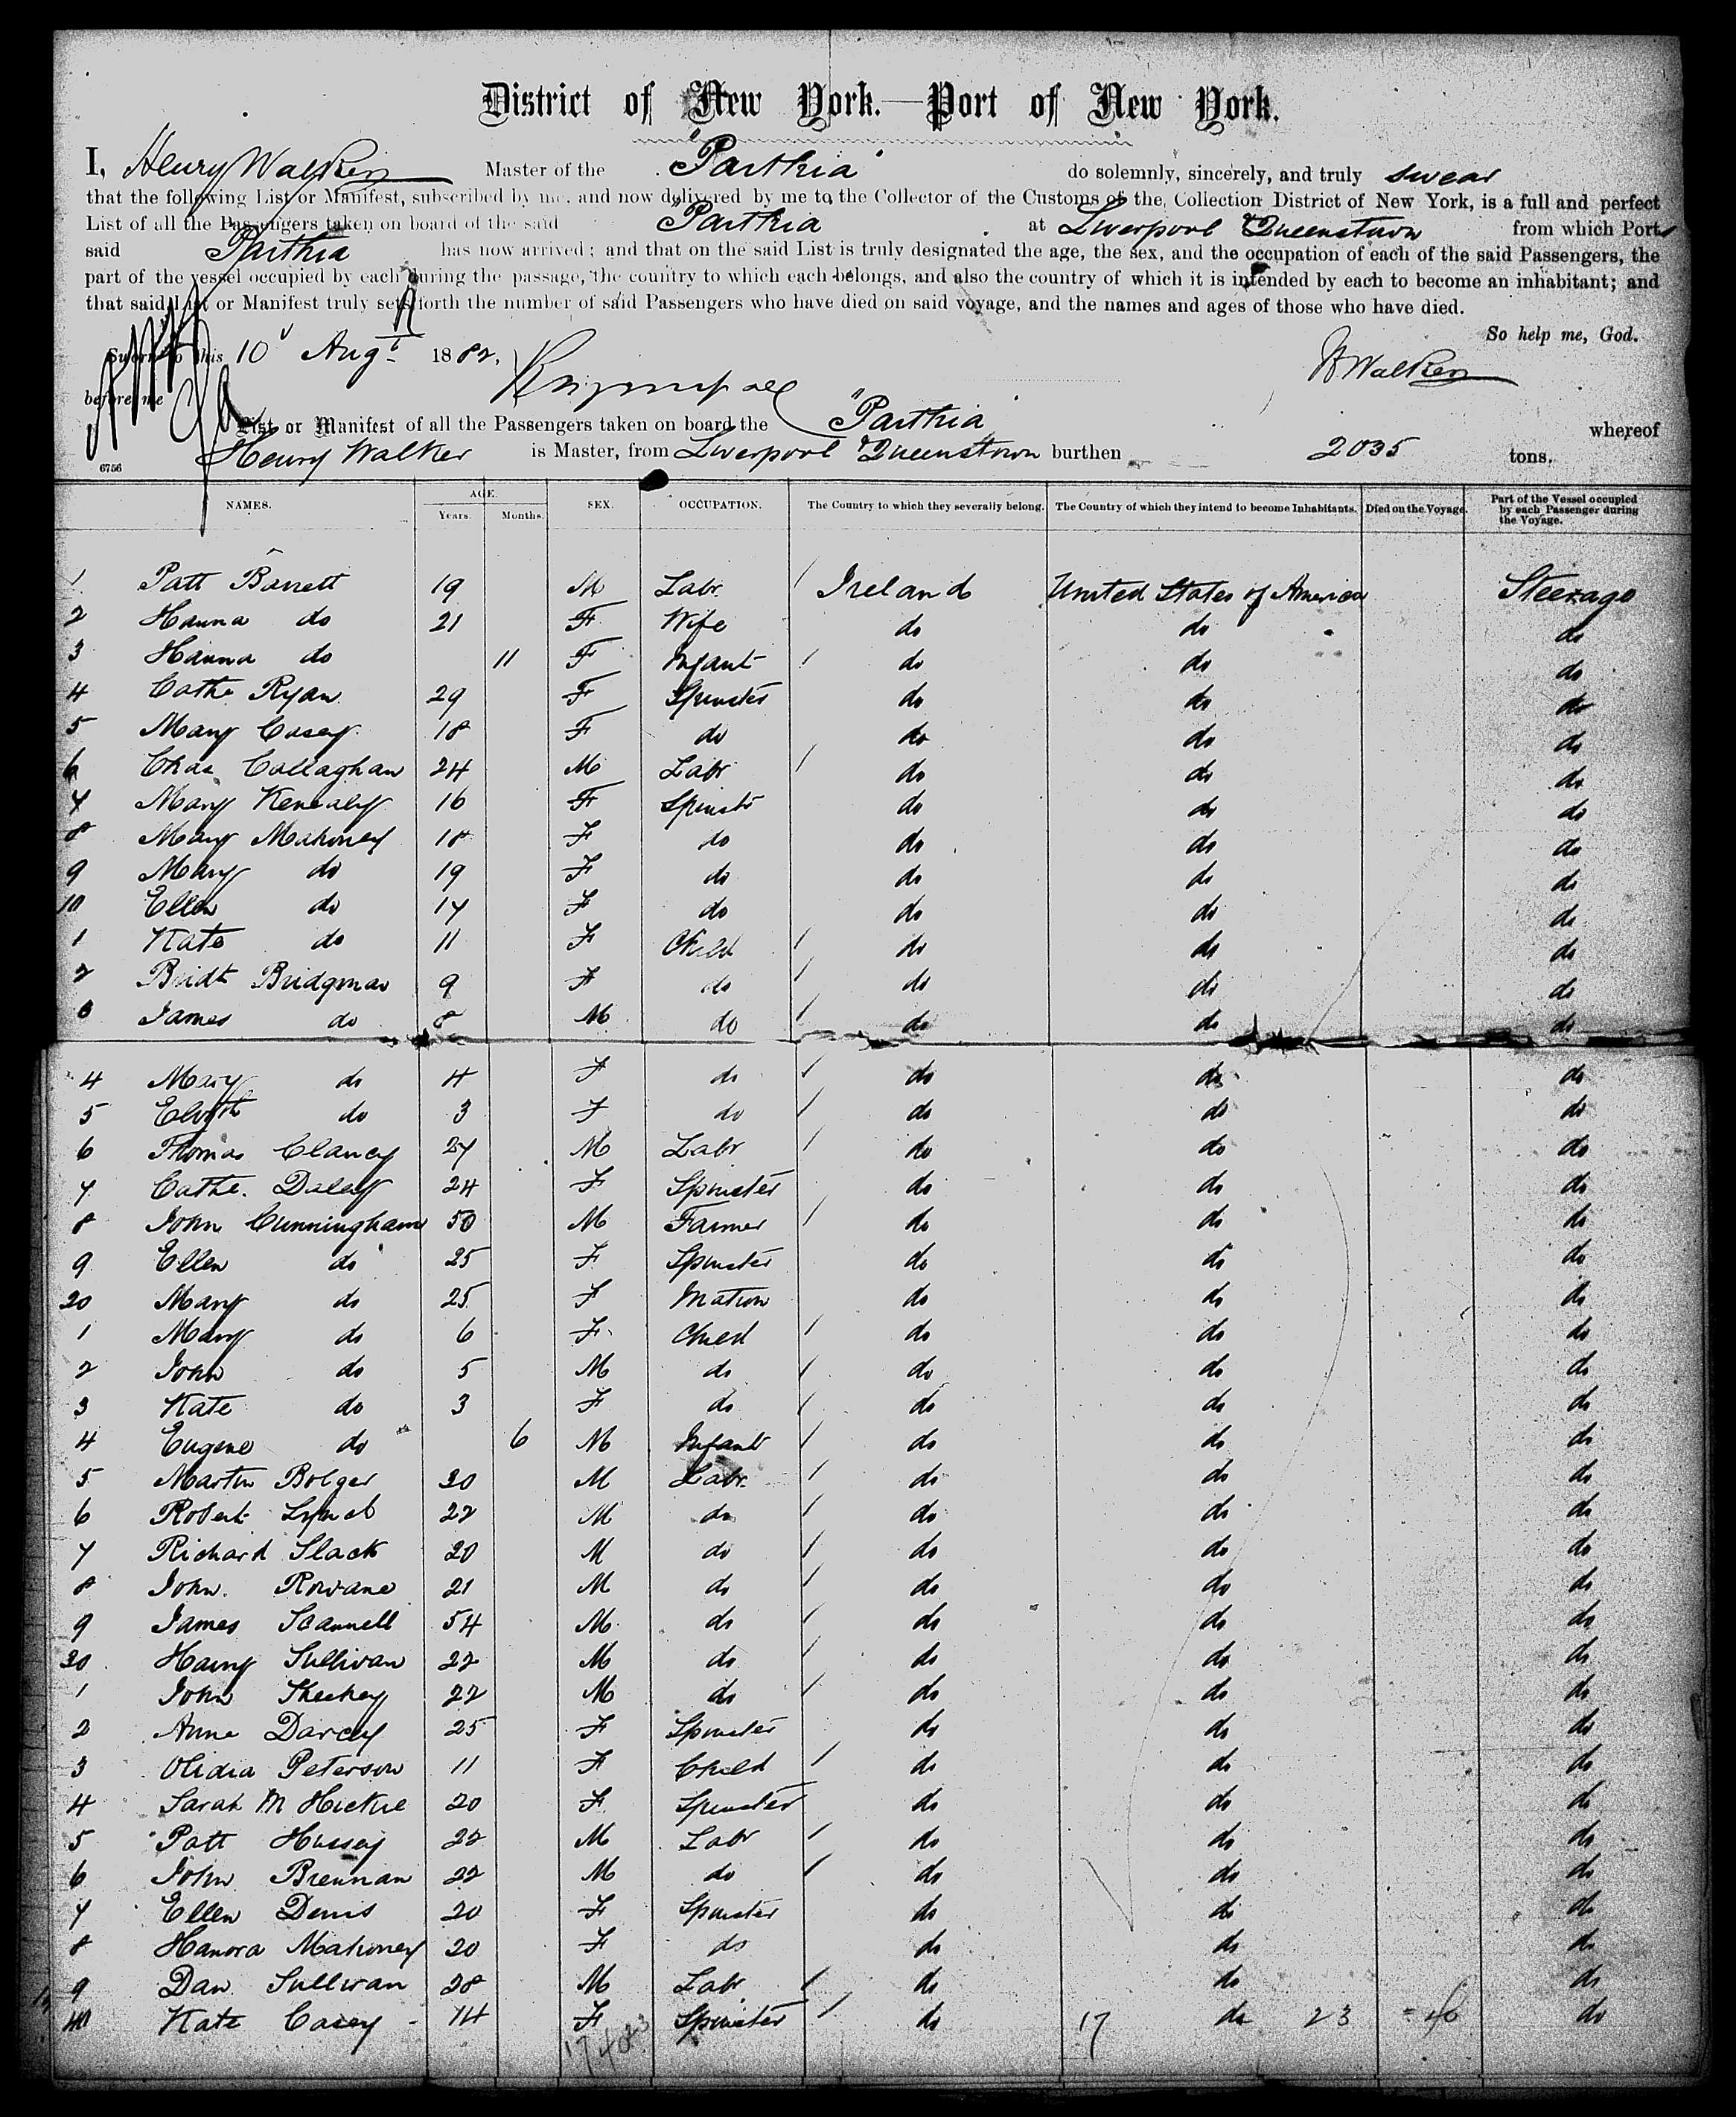 District of New York.—Port of New York.
I, Henry Walker Master of the "Parthia" do solemnly, sincerely, and truly swear
that the following List or Manifest, subscribed by me, and now delivered by me to the Collector of the Customs of the Collection District of New York, is a full and perfect
List of all the Passengers taken on board of the said Parthia at Liverpool & Queenstown from which Ports
said Parthia has now arrived; and that on the said List is truly designated the age, the sex, and the occupation of each of the said Passengers, the
part of the vessel occupied by each during the passage, the country to which each belongs, and also the country of which it is intended by each to become an inhabitant; and
that said List or Manifest truly sets forth the number of said Passengers who have died on said voyage, and the names and ages of those who have died.
So help me, God.
Sworn to this 10 Augt 1882, H Walker
before me
List or Manifest of all the Passengers taken on board the "Parthia" whereof
Henry Walker is Master, from Liverpool & Queenstown burthen 2035 tons.
6756
NAMES. AGE. Years. Months. SEX. OCCUPATION. The Country to which they severally belong. The Country of which they intend to become Inhabitants. Died on the Voyage. Part of the Vessel occupied by each Passenger during the Voyage.
1 Patt Barrett 19 M Labr. Ireland United States of America Steerage
2 Hanna do 21 F Wife do do do
3 Hanna do 11 F Infant do do do
4 Cathe Ryan 29 F Spinster do do do
5 Mary Casey 18 F do do do do
6 Chas Callaghan 24 M Labr do do do
7 Mary Kenealy 16 F Spinstr do do do
8 Mary Mahoney 18 F do do do do
9 Mary do 19 F do do do do
10 Ellen do 17 F do do do do
1 Kate do 11 F Child do do do
2 Bridt Bridgman 9 F do do do do
3 James do 8 M do do do do
4 Mary do 4 F do do do do
5 do 3 F do do do do
6 Thomas Clancy 27 M Labr do do do
7 Cathe. Daley 24 F Spinster do do do
8 John Cunningham 50 M Farmer do do do
9 Ellen do 25 F Spinster do do do
20 Mary do 25 F Matron do do do
1 Mary do 6 F Child do do do
2 John do 5 M do do do do
3 Kate do 3 F do do do do
4 Eugene do 6 M Infant do do do
5 Martin Bolger 20 M Labr. do do do
6 Robert Lynch 22 M do do do do
7 Richard Slack 20 M do do do do
8 John. Rowane 21 M do do do do
9 James Scannell 54 M do do do do
30 Harry Sullivan 22 M do do do do
1 John Sheehey 22 M do do do do
2 Anne Darcey 25 F Spinster do do do
3 Olidia Peterson 11 F Child do do do
4 Sarah M Hickie 20 F Spinster do do do
5 Patt Hussey 22 M Labr do do do
6 John Brennan 22 M do do do do
7 Ellen Denis 20 F Spinster do do do
8 Hanora Mahoney 20 F do do do do
9 Dan Sullivan 28 M Labr do do do
40 Kate Casey 14 F Spinster do 17 do 23 = 40 do
17 40 23